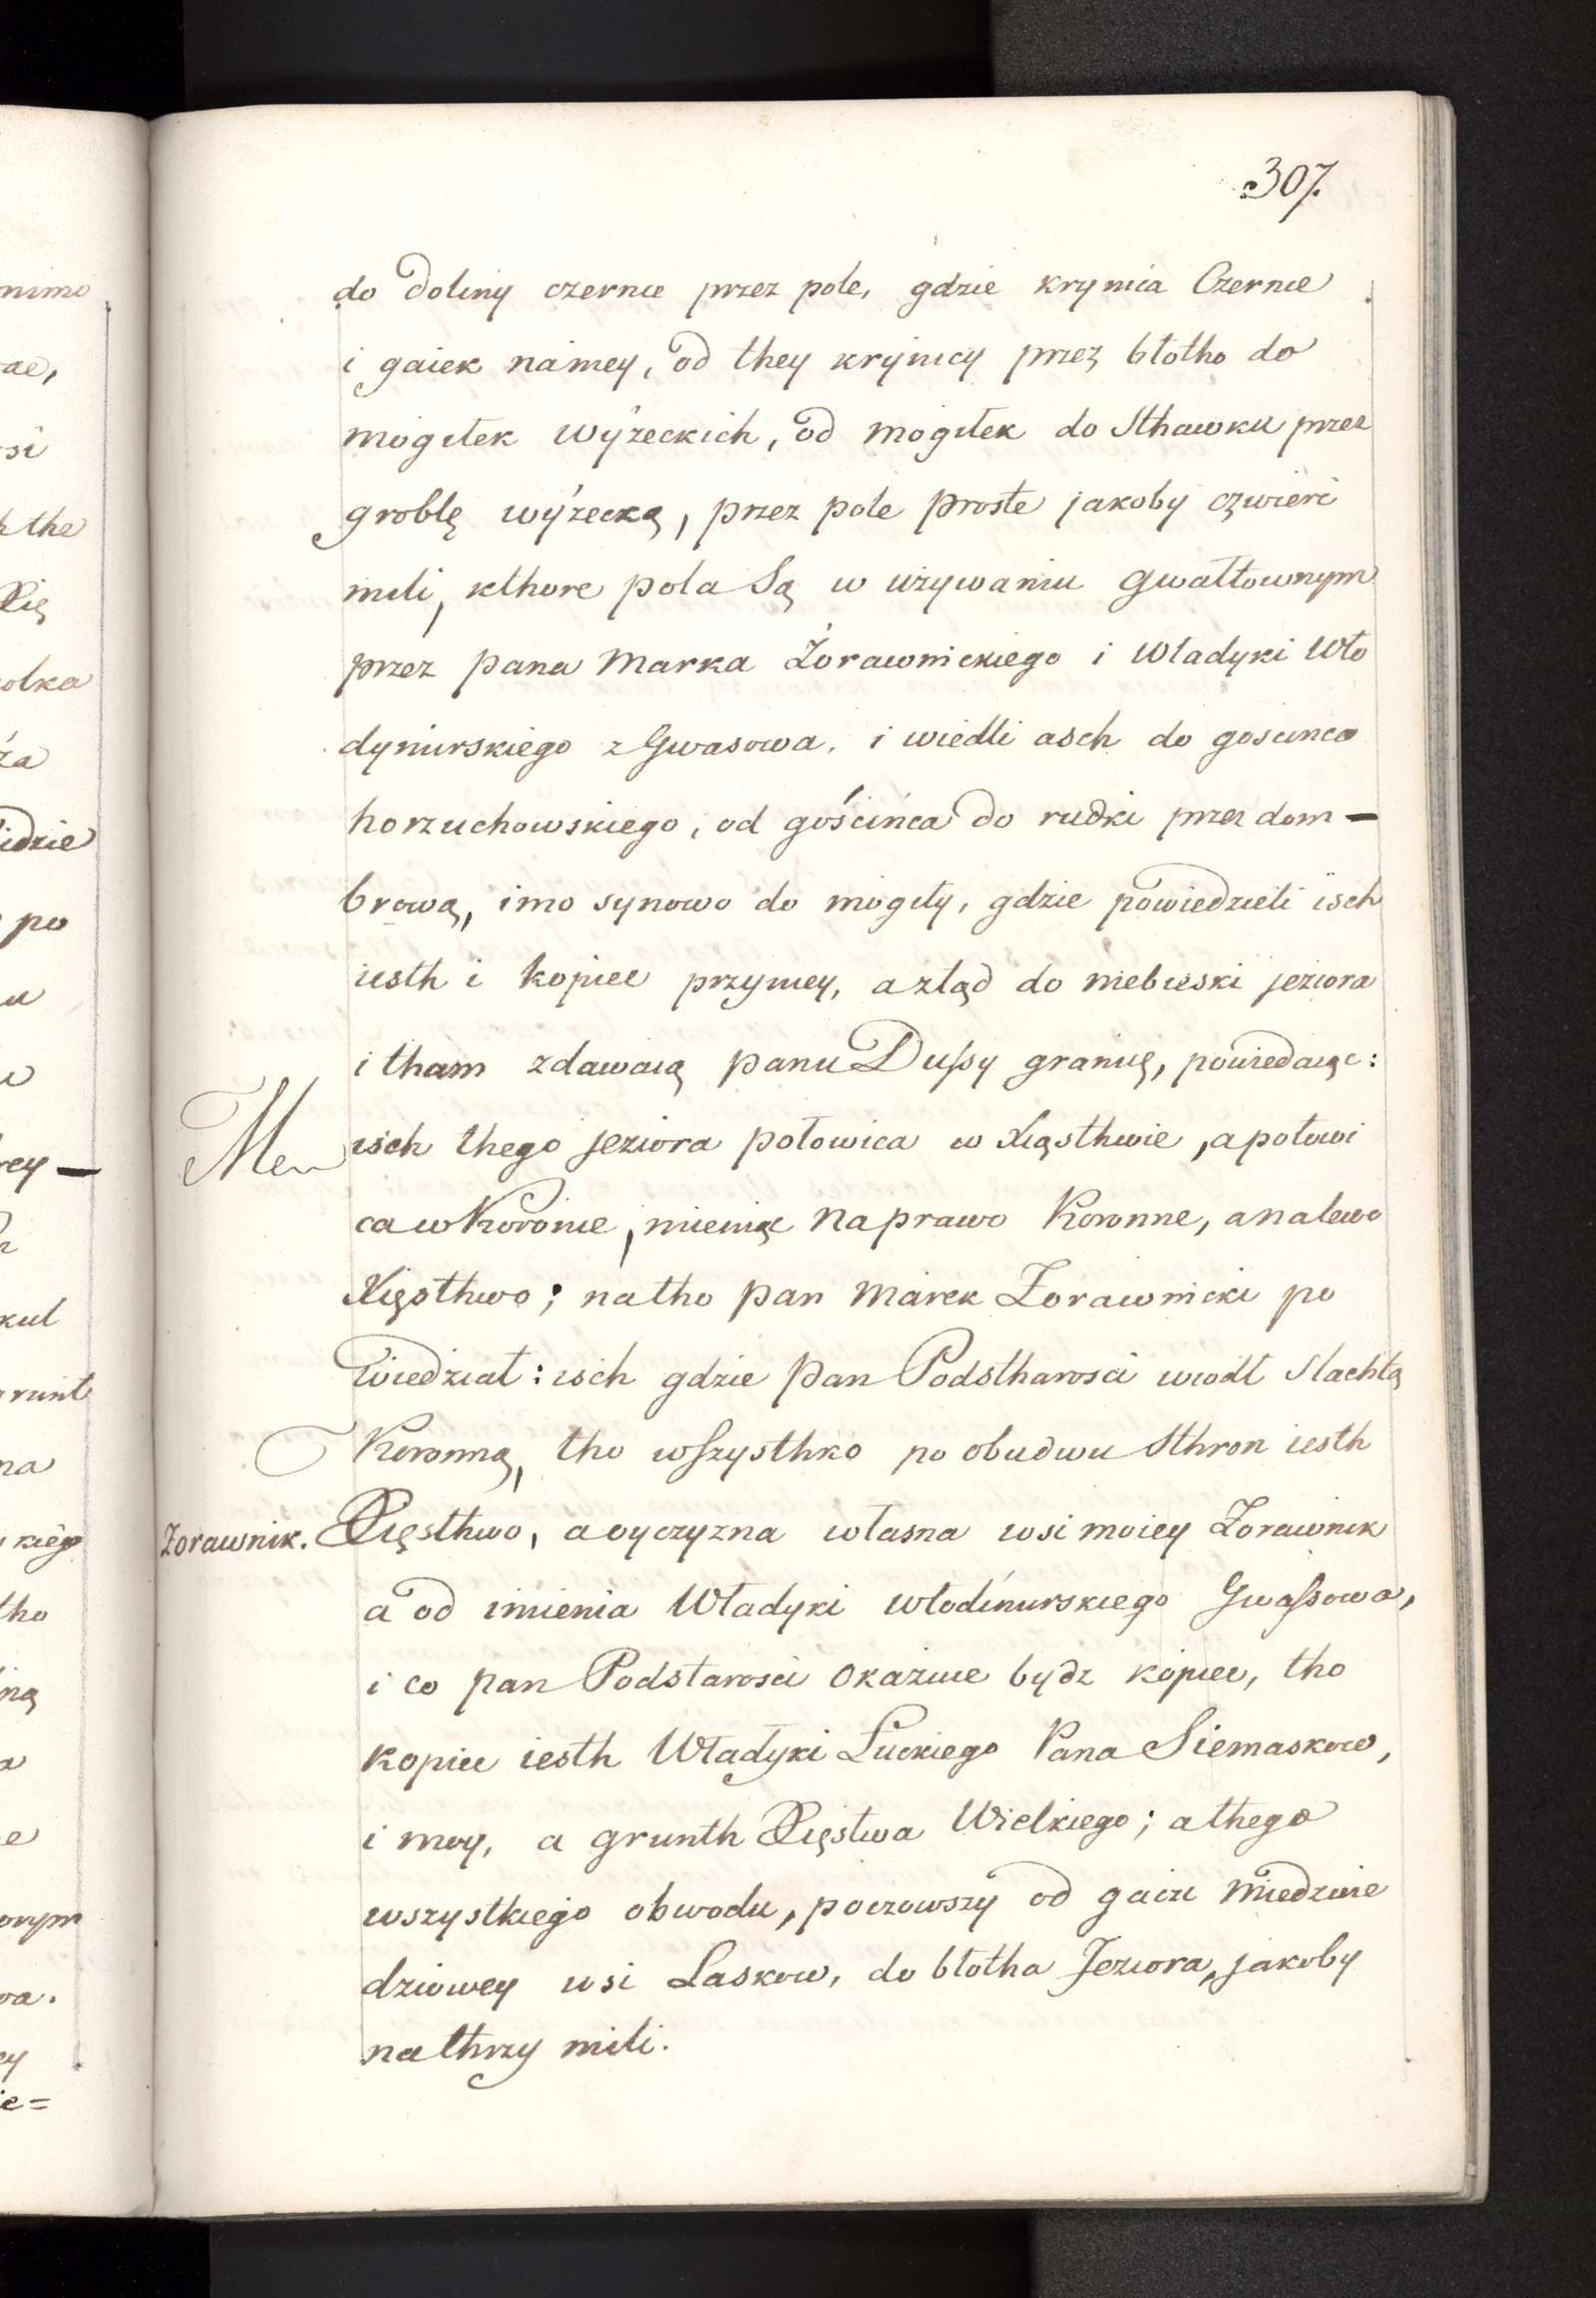 307.
do doliny czernie przez pole, gdzie krynica Czernie
i gaiek námey, od they krynicy przez błotho do
mogiłek wyżeckich, od mogiłek do Sthawku przez
groblę wyżecką, przez pole proste jakoby czwierć
mili, kthore pola Są w używaniu gwałtownym
przez pana Marka Żorawnickiego i Władyki Wło
dymirskiego z Gwasowa, i wiedli asch do goscinca
horzuchowskiego, od gościńca do rudki przez dom-
browę, imo synowo do mogiły, gdzie powiedzieli isch
iesth i kopiec przyniey, a ztąd do niebieski jeziora
i tham zdawaią panu Dussy granicę, powiedaiąc:
isch thego jeziora połowica w Xięsthwie, a połowi
ca w Koronie, mieniąc na prawo Koronne, a nalewo
Xięsthwo; natho pan Marek Żorawnicki po
wiedział: isch gdzie pan Podstharosci wiodł Slachtę
Koronną, tho wszysthko po obudwu Sthron iesth
Żorawnik. Xięsthwo, a oyczyzna własna wsi moiey Żorawnik
a od imienia Władyki włodimirskiego Gwassowa,
i co pan Podstarosci okazuie bydz kopiec, tho
kopiec iesth Władyki Łuckiego Pana Siemaskow,
i moy, a grunth Xięstwa Wielkiego; a thego
wszystkiego obwodu, poczowszy od gaiu Miedzwie
dziowey wsi Laskow, do błotha Jeziora, jakoby
na thrzy mili.